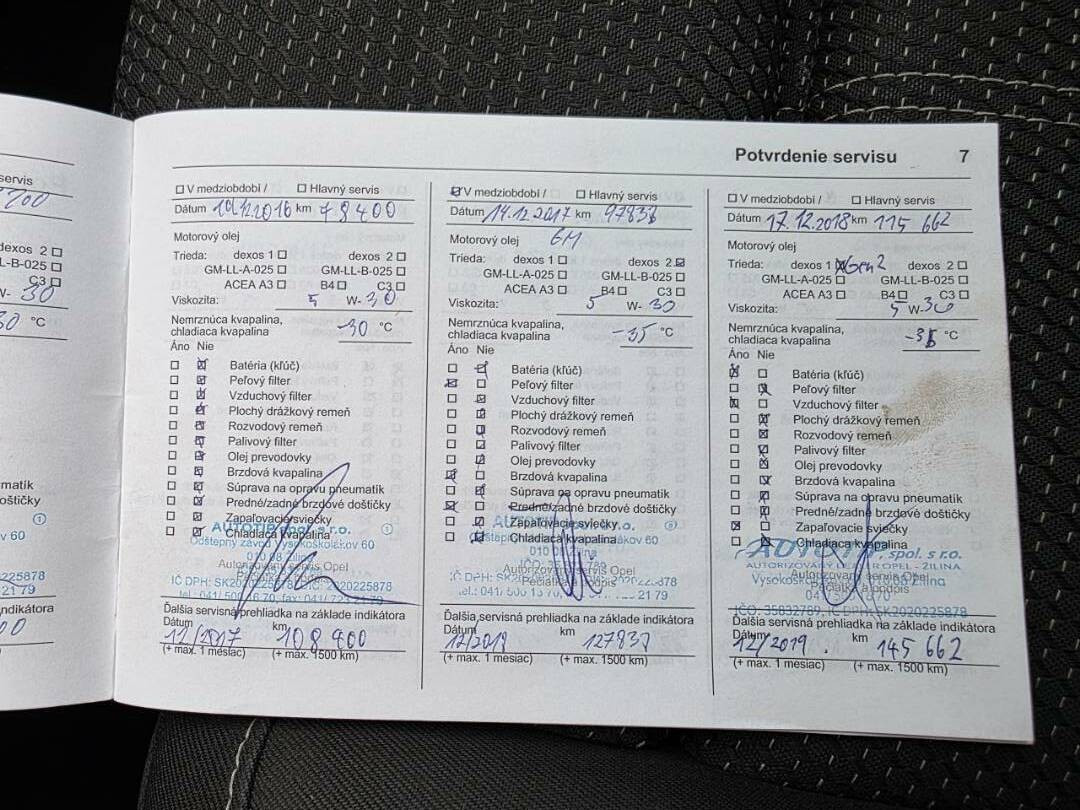 servis
dexos 2
L-B-025
C3
W- 30
30 °C
matik
doštičky
v 60
225878
21 79
indikátora
Potvrdenie servisu 7
V medziobdobí / Hlavný servis
Dátum 10.12.2016 km 78400
Motorový olej
Trieda: dexos 1 dexos 2
GM-LL-A-025 GM-LL-B-025
ACEA A3 B4 C3
Viskozita: 5 W- 30
Nemrznúca kvapalina,
chladiaca kvapalina -30 °C
Áno Nie
Batéria (kľúč)
Peľový filter
Vzduchový filter
Plochý drážkový remeň
Rozvodový remeň
Palivový filter
Olej prevodovky
Brzdová kvapalina
Súprava na opravu pneumatik
Predné/zadné brzdové doštičky
Zapaľovacie sviečky
Chladiaca kvapalina
AUTOTIP spol. s r.o. 1
Odštepný závod Vysokoškolákov 60
010 08 Žilina
Autorizovaný servis Opel
Pečiatka a podpis
Ďalšia servisná prehliadka na základe indikátora
Dátum km
12/2017 108400
(+ max. 1 mesiac) (+ max. 1500 km)
V medziobdobí / Hlavný servis
Dátum 14.12.2017 km 97838
Motorový olej GM
Trieda: dexos 1 dexos 2
GM-LL-A-025 GM-LL-B-025
ACEA A3 B4 C3
Viskozita: 5 W- 30
Nemrznúca kvapalina,
chladiaca kvapalina -35 °C
Áno Nie
Batéria (kľúč)
Peľový filter
Vzduchový filter
Plochý drážkový remeň
Rozvodový remeň
Palivový filter
Olej prevodovky
Brzdová kvapalina
Súprava na opravu pneumatik
Predné/zadné brzdové doštičky
Zapaľovacie sviečky
Chladiaca kvapalina
010 08 Žilina
Autorizovaný servis Opel
Pečiatka a podpis
21 79
Ďalšia servisná prehliadka na základe indikátora
Dátum km
12/2018 127838
(+ max. 1 mesiac) (+ max. 1500 km)
V medziobdobí / Hlavný servis
Dátum 17.12.2018 km 115 662
Motorový olej
Trieda: dexos 1 Gen2 dexos 2
GM-LL-A-025 GM-LL-B-025
ACEA A3 B4 C3
Viskozita: 5 W- 30
Nemrznúca kvapalina,
chladiaca kvapalina °C
Áno Nie
Batéria (kľúč)
Peľový filter
Vzduchový filter
Plochý drážkový remeň
Rozvodový remeň
Palivový filter
Olej prevodovky
Brzdová kvapalina
Súprava na opravu pneumatik
Predné/zadné brzdové doštičky
Zapaľovacie sviečky
Chladiaca kvapalina
AUTOTIP, spol. s r.o.
AUTORIZOVANÝ DEALER OPEL - ŽILINA
Autorizovaný servis Opel
Pečiatka a podpis
IČO: 35832789, IČ DPH: SK2020225878
Ďalšia servisná prehliadka na základe indikátora
Dátum km
12/2019. 145 662
(+ max. 1 mesiac) (+ max. 1500 km)